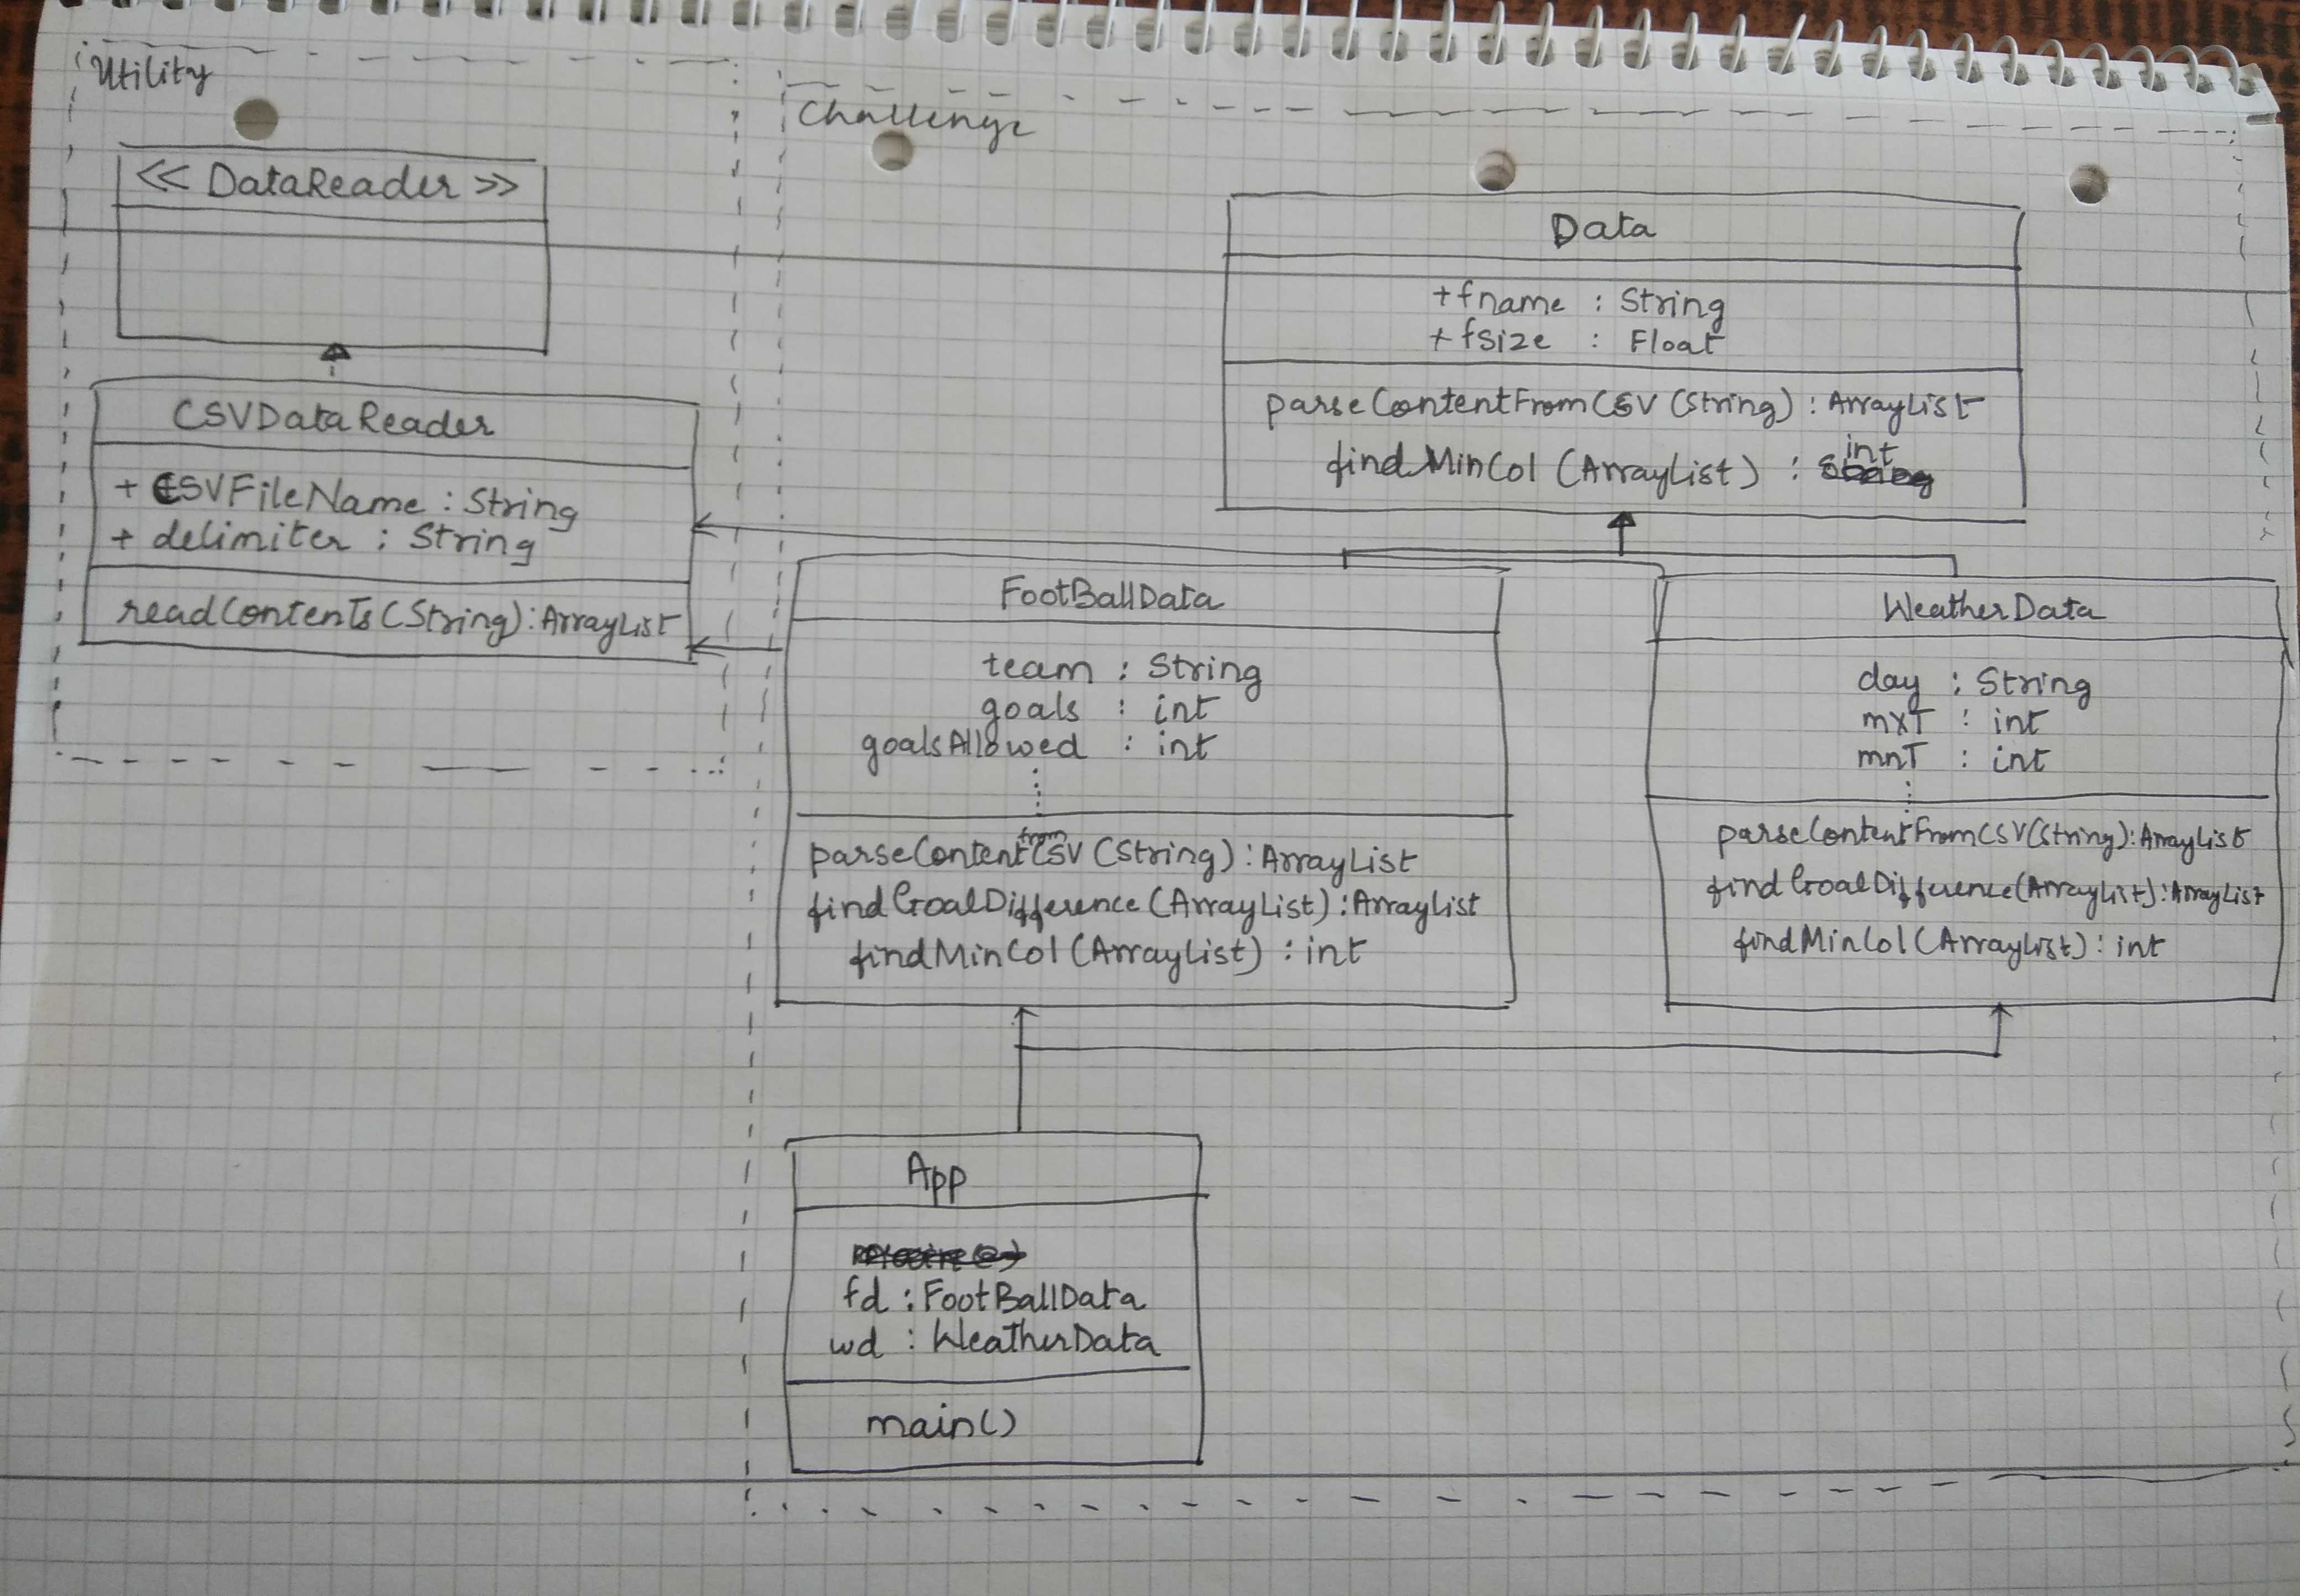 Utility
<< DataReader >>
CSVDataReader
+ CSVFileName : String
+ delimiter : String
readContents(String):ArrayList
Challenge
Data
+fname : String
+fsize : Float
parseContentFromCSV (String) : ArrayList
findMinCol (ArrayList) : int
FootBallData
team : String
goals : int
goalsAllowed : int
parseContentfromCSV (String) : ArrayList
findGoalDifference (ArrayList) : ArrayList
findMinCol (ArrayList) : int
WeatherData
day : String
mxT : int
mnT : int
parseContentFromCSV(String):ArrayList
findGoalDifference(ArrayList):ArrayList
findMinCol (ArrayList) : int
App
fd : FootBallData
wd : WeatherData
main()